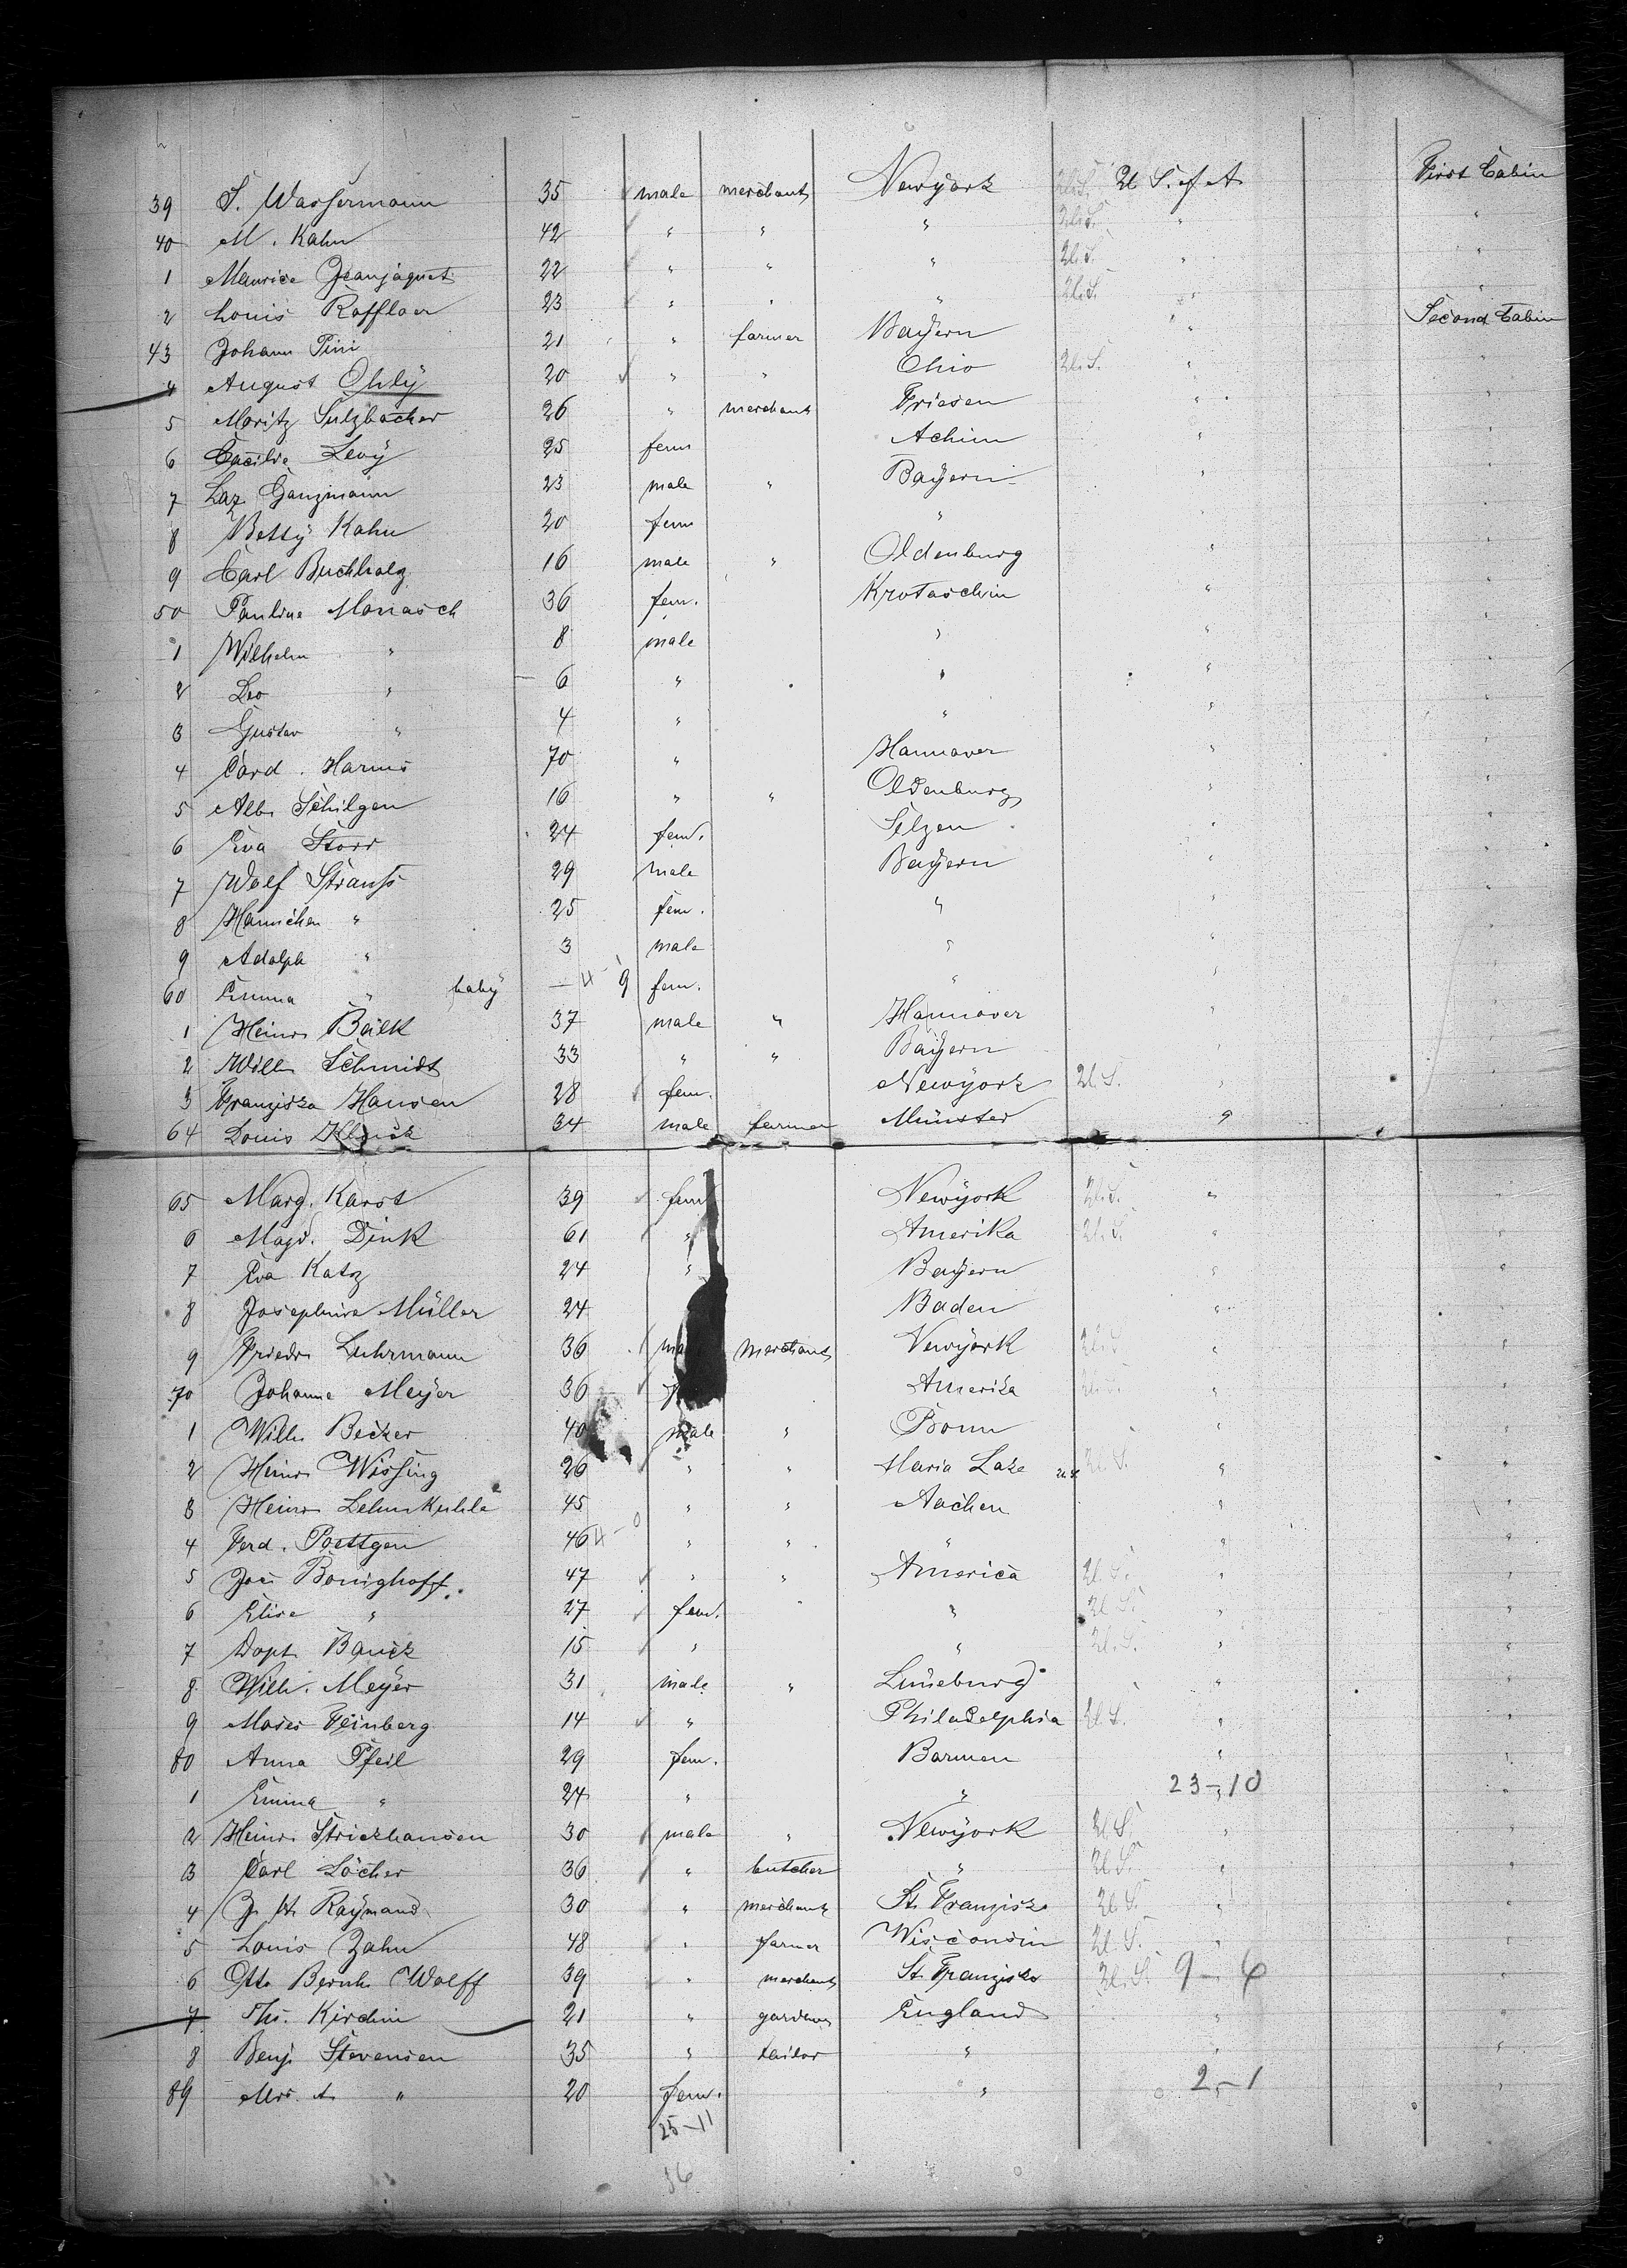 39 S. Wassermann 35 male merchant Newyork U.S. U. S. of A. First Cabin
40 M. Kahn 42 " " " U.S. " "
1 Maurice Jeanjaquet 22 " " " U.S. " "
2 Louis 23 " " " U.S. " "
43 Johann Pini 21 " farmer Bayern " Second Cabin
4 August Ohly 20 " " Ohio U.S. " "
5 Moritz Sulzbacher 26 " merchant Friesen " "
6 Cäcilie Levy 25 fem Achim " "
7 Laz. Ganzmann 23 male " Bayern " "
8 Betty Kahn 20 fem " " "
9 Carl Buchholz 16 male " Oldenburg " "
50 Pauline Monasch 36 fem. Krotoschin " "
1 Wilhelm " 8 male " " "
2 Leo " 6 " " " "
3 Gustav " 4 " " " "
4 Cord. Harms 70 " Hannover " "
5 Alb. Schilgen 16 " " Oldenburg " "
6 Eva Storr 24 fem. Selzen " "
7 Wolf Strauß 29 male Bayern " "
8 Hannchen " 25 fem. " " "
9 Adolph " 3 male " " "
60 Emma " baby 9 fem. " " "
1 Heinr. 37 male " Hannover " "
2 Wilh. Schmidt 33 " " Bayern " "
3 Franziska Hansen 28 fem. Newyork U.S. " "
64 Louis 34 male farmer Münster "
65 Marg. Karst 39 fem Newyork U.S. " "
6 Magd. Dink 61 " Amerika U.S. " "
7 Eva Katz 24 " Bayern " "
8 Josephine Müller 24 Baden " "
9 Friedr. Luhrmann 36 merchant Newyork U.S. " "
70 Johanne Meyer 36 Amerika U.S. " "
1 Wilh. Becker 40 male " Bonn " "
2 Heinr. Wissing 26 " " Maria Lake U.S. " "
3 Heinr. Lehmkuhle 45 " " Aachen " "
4 Ferd. Poettgen 46 " " " " "
5 Jos. Bonighoff 47 " " America U.S. " "
6 Elise " 27 fem. " U.S. " "
7 15 " " U.S. " "
8 Wilh. Meyer 31 male " Lüneburg " "
9 Moses Feinberg 14 " Philadelphia U.S. " "
80 Anna Pfeil 29 fem. Barmen " "
1 Emma " 24 " " 23-10 "
2 Heinr. Strickhausen 30 male " Newyork U.S. " "
3 Carl Löcher 36 " butcher " U.S. " "
4 Raymand 30 " merchant St. Franzisko U.S. " "
5 Louis Zahn 48 " farmer Wisconsin U.S. " "
6 Otto Bernh. Wolff 39 " merchant St. Franzisko U.S. 9-6 "
7 Ths. Kirchin 21 " gardener England " "
8 Benj. Stevensen 35 " tailor " " "
89 Mrs. A. " 20 fem. " 2-1 "
25-11